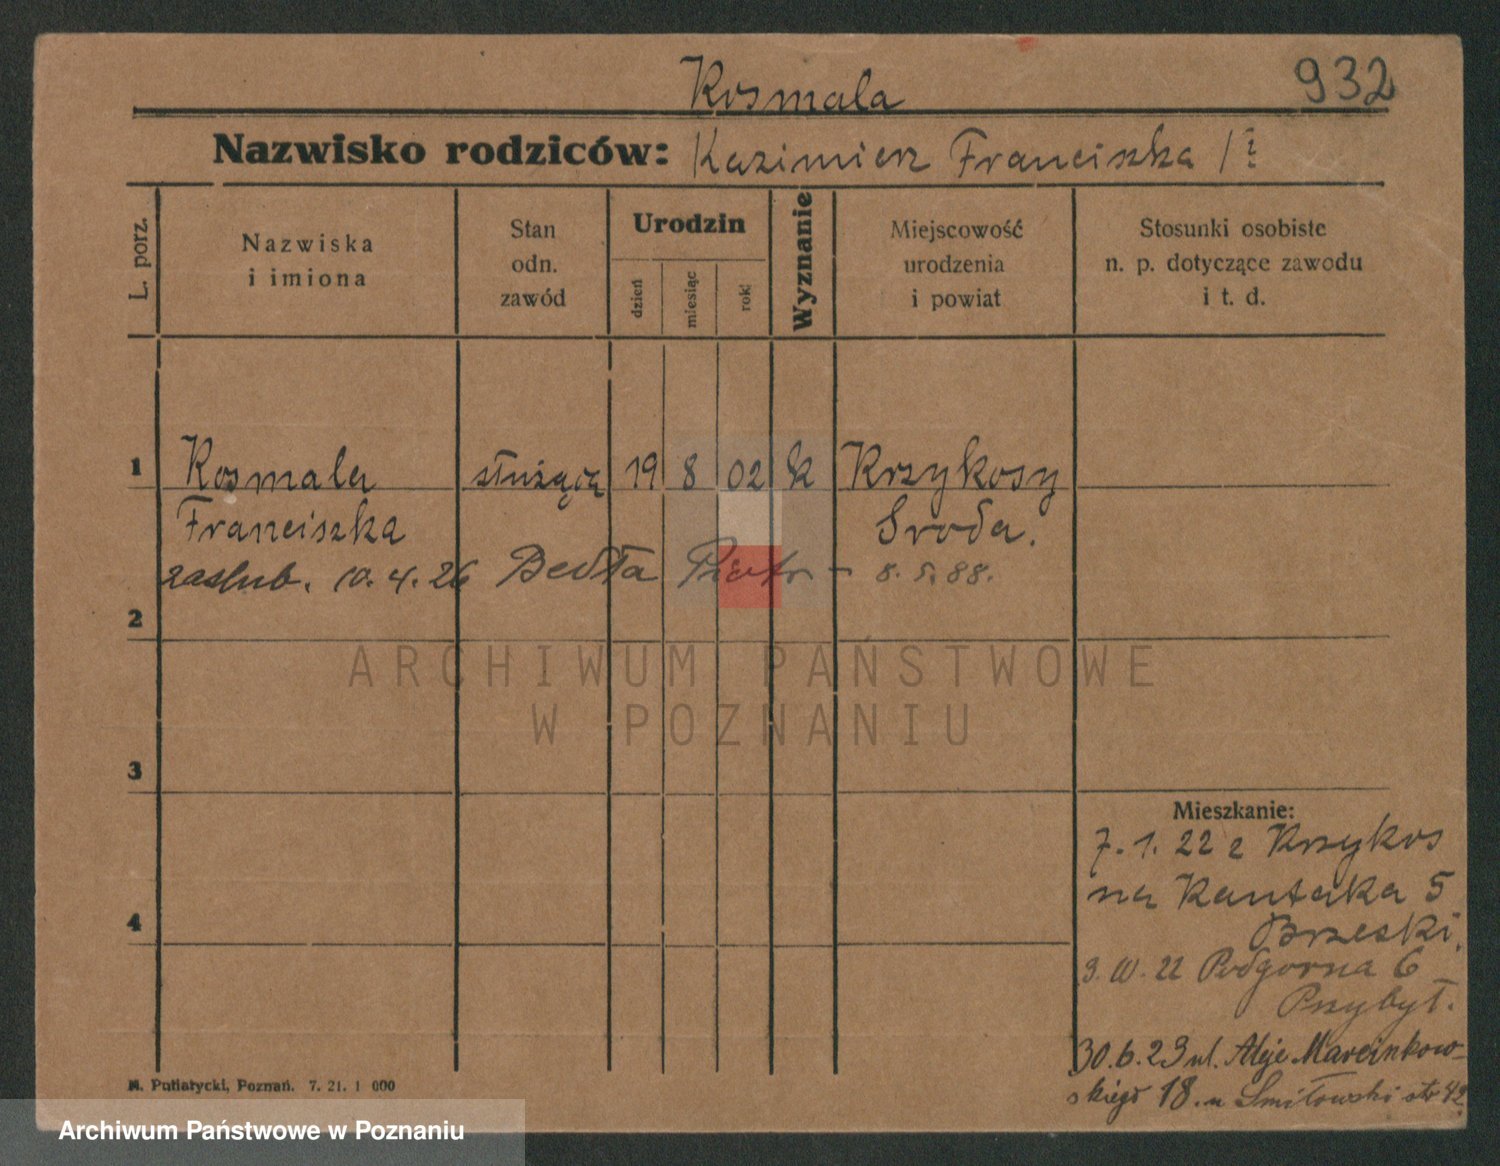 Kosmala
932
Nazwisko rodziców: Kazimierz Franciszka
L. porz.
Nazwiska
i imiona
Stan
odn.
zawód
Urodzin
dzień
miesiąc
rok
Wyznanie
Miejscowość
urodzenia
i powiat
Stosunki osobiste
n. p. dotyczące zawodu
i t. d.
1 Kosmala służąca 19 8 02 k Krzykosy
Franciszka Środa.
zaślub. 10. 4. 26 Bedła Piotr - 8. 5. 88.
2
ARCHIWUM PAŃSTWOWE
W POZNANIU
3
Mieszkanie:
7. 1. 22 z Krzykos
na Kantaka 5
Brzeski.
4
9. III. 22 Podgorna 6
Przybył.
30. 6. 23 ul. Aleje Marcinkow-
skiego 18. u Smiłowski str 42
M. Putiatycki, Poznań. 7. 21. 1 000
Archiwum Państwowe w Poznaniu